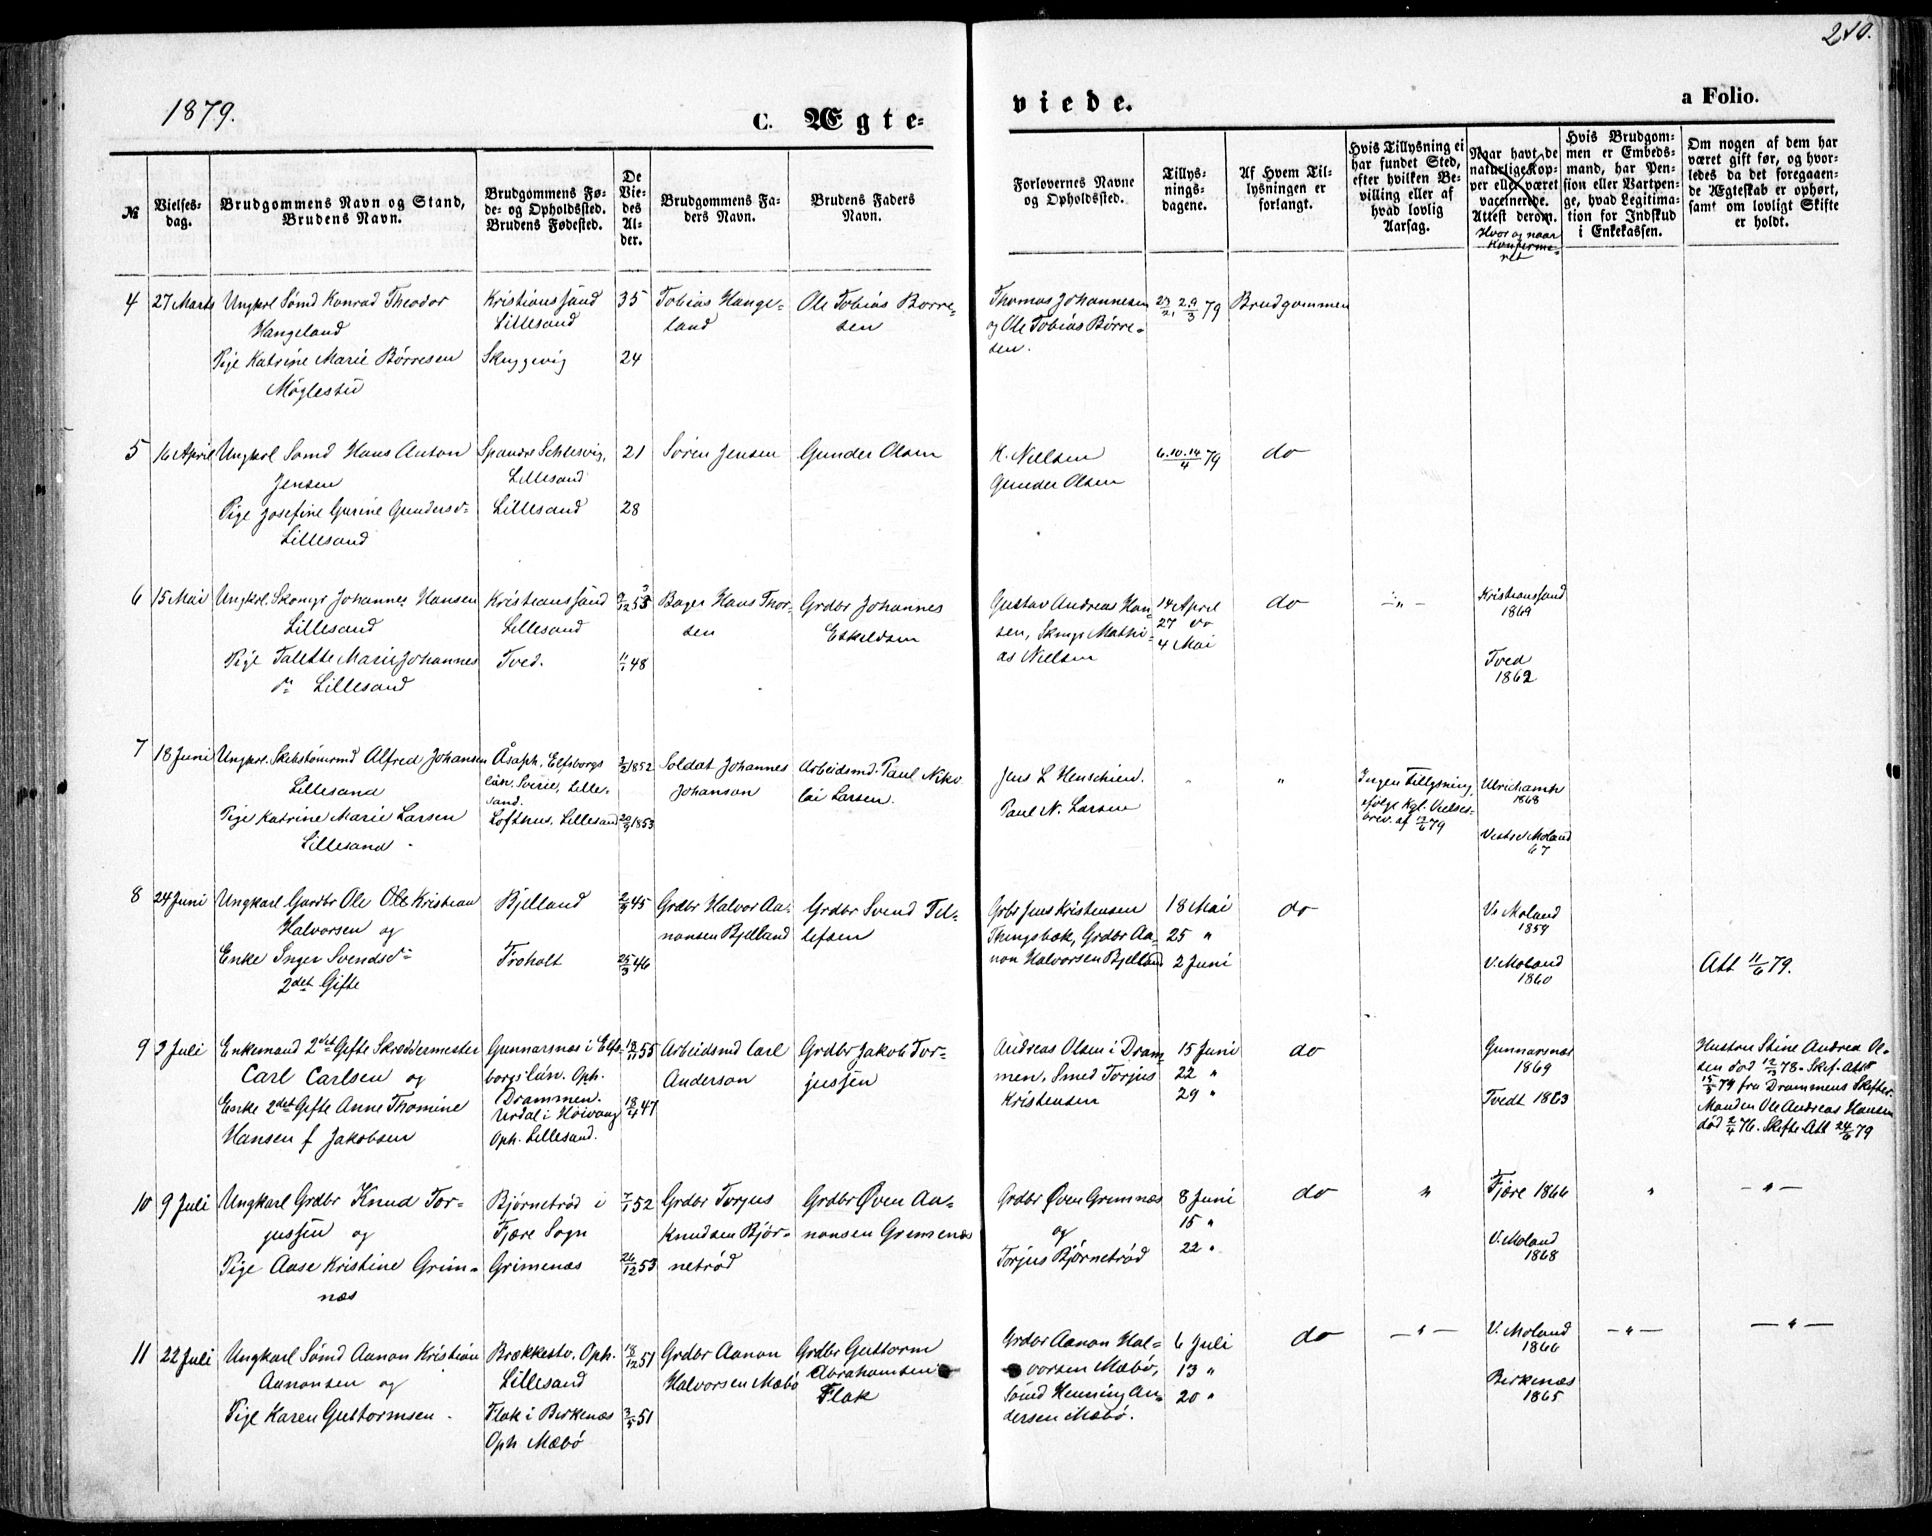 210.
1879.
C. Ægte-
viede.
a Folio.
№
Vielses-
dag.
Brudgommens Navn og Stand,
Brudens Navn.
Brudgommens Fø-
de- og Opholdssted.
Brudens Fødested.
De
Vie-
des
Al-
der.
Brudgommens Fa-
ders Navn.
Brudens Faders
Navn.
Forlovernes Navne
og Opholdssted.
Tillys-
nings-
dagene.
Af Hvem Til-
lysningen er
forlangt.
Hvis Tillysning ei
har fundet Sted,
efter hvilken Be-
villing eller af
hvad lovlig
Aarsag.
Naar havt de
naturlige Kop-
per eller været
vaccinerede.
Attest derom.
Hvor og naar
Konfirme-
ret
Hvis Brudgom-
men er Embeds-
mand, har Pen-
sion eller Vartpen-
ge, hvad Legitima-
tion for Indskud
i Enkekassen.
Om nogen af dem har
været gift før, og hvor-
ledes da det foregaaen-
de Ægteskab er ophørt,
samt om lovligt Skifte
er holdt.
4
27 Marts
Ungkrl Sømd Konrad Theodor
Hangeland
Pige Katrine Marie Børresen
Møglestu
Kristianssand
Lillesand
Skuggevig
35
24
Tobias Hange-
land
Ole Tobias Børre-
sen
Thomas Johannesen
og Ole Tobias Børre-
sen.
2.9/3 79
Brudgommen
5
16 April
Ungkrl Sømd Hans Anton
Jensen
Pige Josefine Gurine Gundersd-
Lillesand
Spandet Schlesvig,
Lillesand
Lillesand
21
28
Søren Jensen
Gunder Olsen
K. Nielsen
Gunder Olsen
6.10.14/4 79
do
6
15 Mai
Ungkrl. Skomgr Johannes Hansen
Lillesand
Pige Talette Marie Johannes
dr Lillesand
Kristianssand
Lillesand
Tved.
9/12 53
11/1 48
Bager Hans Thor-
sen
Grdbr Johannes
Eskeldsen
Gustav Andreas Han-
sen, Skmgr Mathi-
as Nielsen
14 April
27 do
4 Mai
do
-"-
Kristianssand
1869
Tved
1862
7
18 Juni
Ungkrl. Skibstømrmd Alfred Johansen
Lillesand
Pige Katrine Marie Larsen
Lillesand -
Åsaph, Elfsborgs
län. Sverie, Lille-
sand.
Lofthus. Lillesand
3/3 1852
20/9 1853
Soldat Johannes
Johanson
Arbeidsmd. Paul Niko-
lai Larsen.
Jens L Henschien.
Paul N. Larsen
"
"
Ingen Tillysning,
ifølge Kgl. Vielses-
brev. af 12/6 79
Ulrichamn
1868
Vestre Moland
67
8
24 Juni
Ungkarl Gardbr Ole Ole Kristian
Halvorsen og
Enke Inger Svendsd-
2det Gifte
Bjelland
Troholt
2/9 45
25/3 46
Grdbr Halvor Aa-
nonsen Bjelland
Grdbr Svend Tel-
lefsen
Grbr Jens Kristensen
Tingsbæk, Grdbr Aa-
non Halvorsen Bjelland
18 Mai
25 "
2 Juni
do
V. Moland
1859
V. Moland
1860
Att 11/6 79.
9
3 Juli
Enkemand 2det Gifte Skræddermester
Carl Carlsen og
Enke 2det Gifte Anne Thomine
Hansen f Jakobsen
Gunnarsnæs i Elfs-
borgs Län. Oph.
Drammen.
Urdal i Høivaag
Oph. Lillesand.
18/7 55
18/4 47
Arbeidsmd Carl
Anderson
Grdbr Jakob Tor-
jussen
Andreas Olsen i Dram-
men. Smed Torjus
Kristensen
15 Juni
22 "
29 "
do
Gunnarsnæs
1869
Tvedt 1863
Hustru Stine Andrea Ol-
sen død 12/3 78. Skif. Att
15/3 79 fra Drammens Skifter.
Manden Ole Andreas Hansen
død 2/4 76. Skifte Att 24/6 79
10
9 Juli
Ungkarl Grdbr Knud Tor-
jussen og
Pige Aase Kristine Grim-
næs
Bjørnetrød i
Fjære Sogn
Grimenæs
7/1 52
26/12 53
Grdbr Torjus
Knudsen Bjør-
netrød
Grdbr Øven Aa-
nonsen Gremenæs
Grdbr Øven Gremnæs
og
Torjus Bjørnetrød
8 Juni
15 "
22 "
do
"
Fjære 1866
V. Moland
1868
"
-"-
11
22 Juli
Ungkarl Sømd Aanon Kristian
Aanonsen og
Pige Karen Guttormsen -
Brækkestø. Oph.
Lillesand
Flak i Birkenæs
Oph Mæbø
18/12 51
3/5 51
Grdbr Aanon
Halvorsen Mæbø
Grdbr Guttorm
Abrahamsen
Flak
Grdbr Aanon Hal-
vorsen Mæbø,
Sømd Henning An-
dersen Mæbø.
6 Juli
13 "
20 "
do
-"-
V. Moland
1866
Birkenæs
1865
-"-
-"-